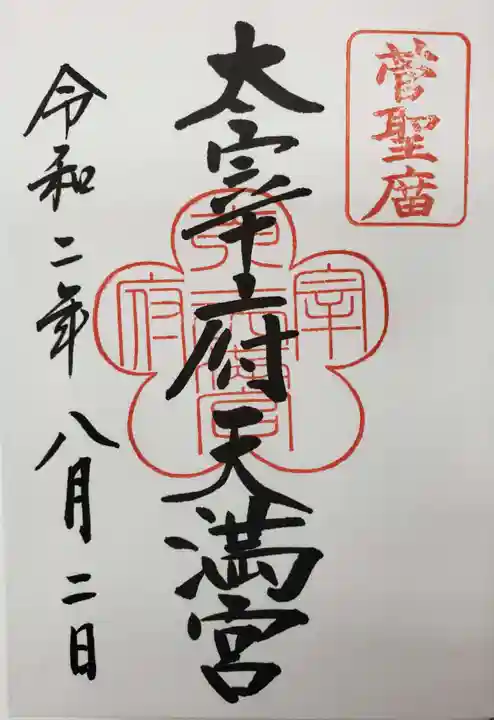 菅聖庿
太宰府天満宮
令和二年八月二日
太宰府天満宮